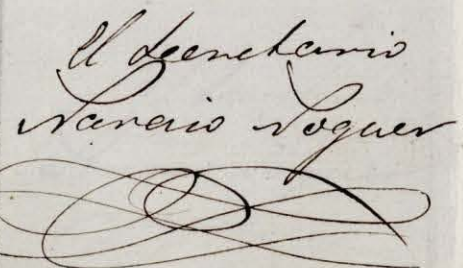 El Secretario
Narciso Noguer